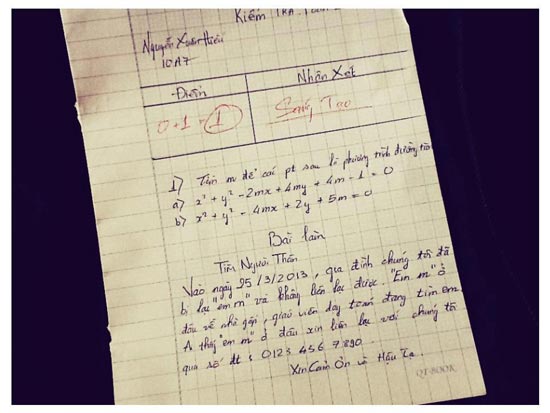 Kiểm Tra Toán
Nguyễn Xuân Hiếu
10A7
Điểm
Nhận Xét
0+1 = 1
Sáng Tạo
1) Tìm m để các pt sau là phương trình đường tròn
a) x² + y² - 2mx + 4my + 4m - 1 = 0
b) x² + y² - 4mx + 2y + 5m = 0
Bài làm
Tìm Người Thân
Vào ngày 25/3/2013, gia đình chúng tôi đã
bị lạc "em m" và không liên lạc được "Em m" ở
đâu về nhà gấp, giáo viên dạy toán đang tìm em
Ai thấy "em m" ở đâu xin liên lạc với chúng tôi
qua số đt : 0123 456 7890
Xin Cảm Ơn và Hậu Tạ.
QT-BOOK